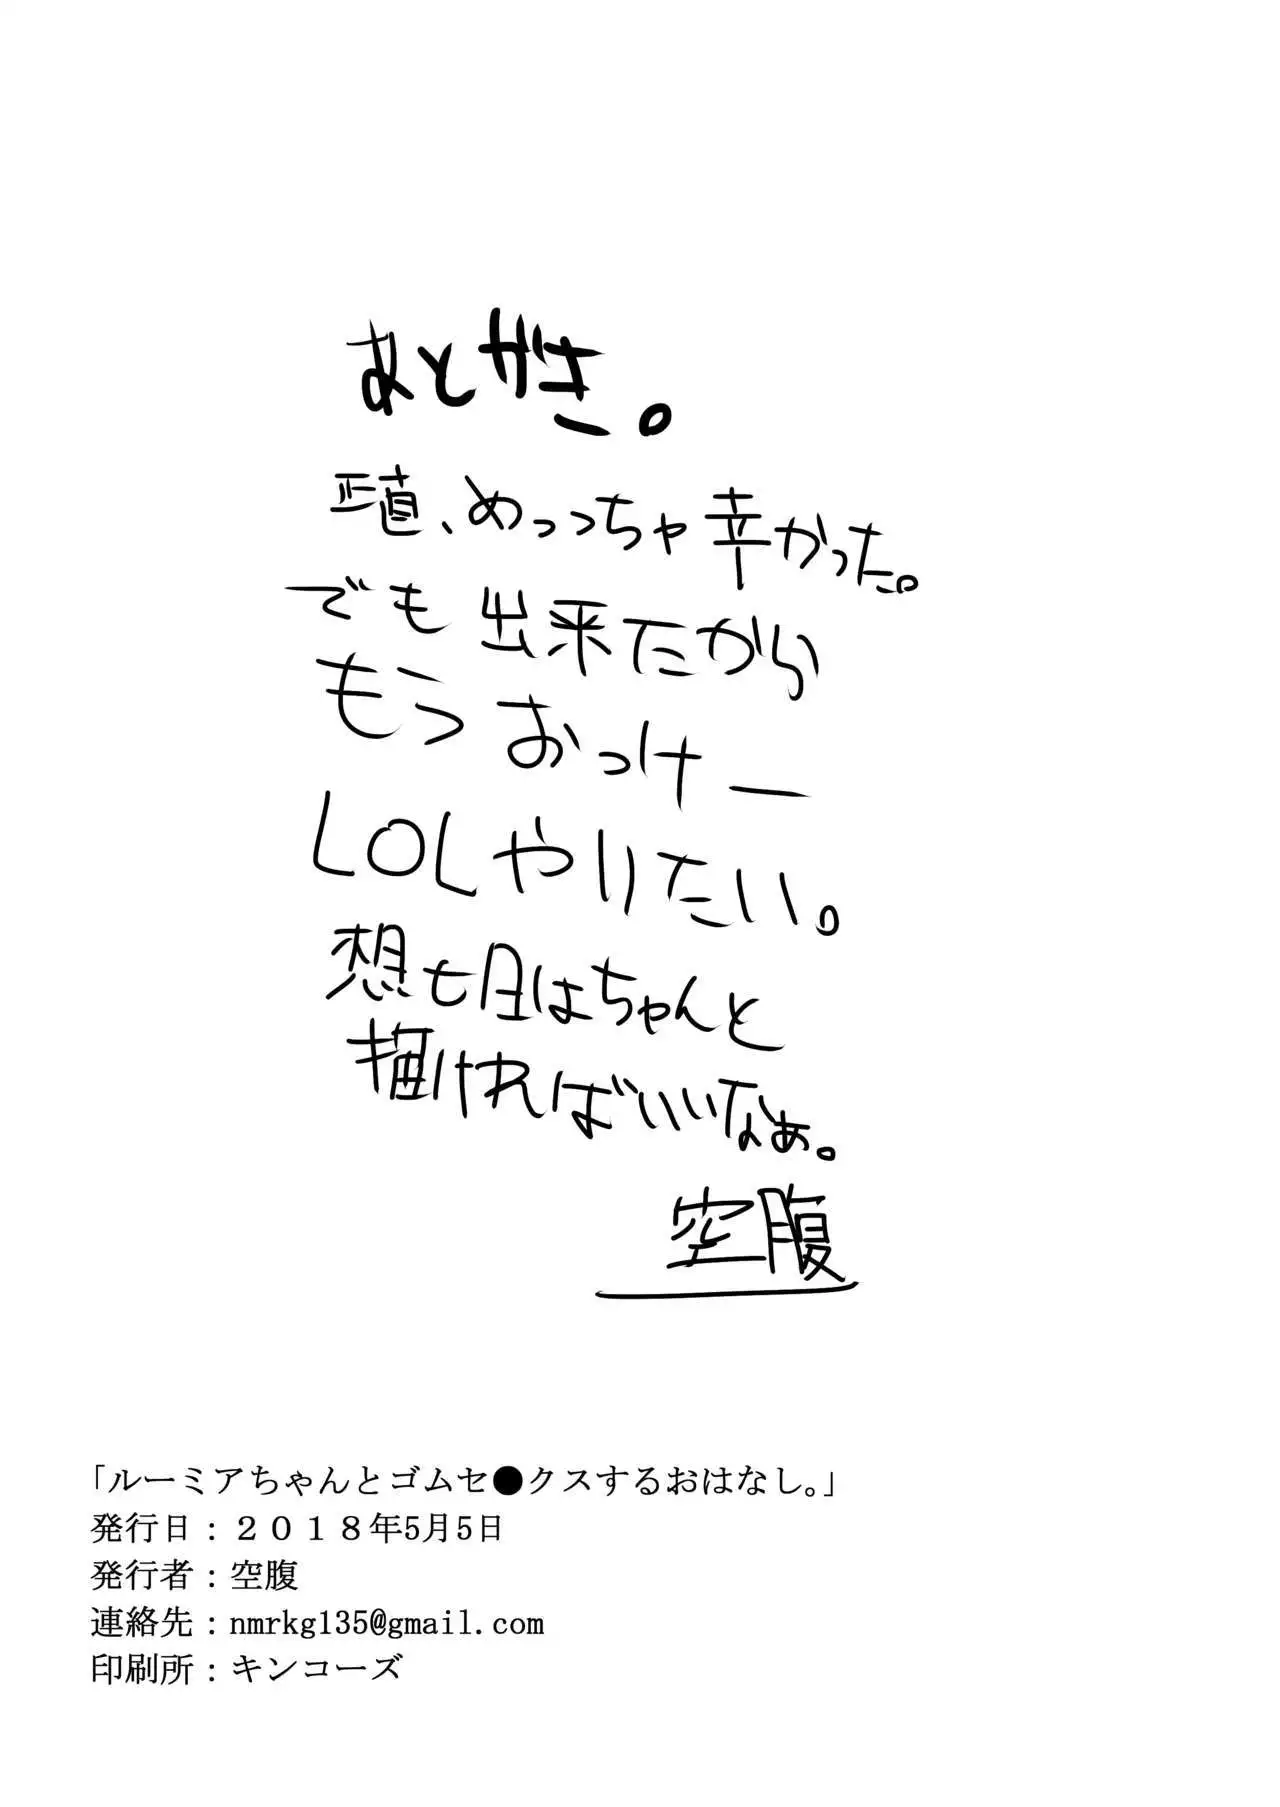 あとがき。
正直、めっっちゃ辛かった。
でも出来たから
もうおっけー
LOLやりたい。
想七日はちゃんと
描ければいいなぁ。
空腹
「ルーミアちゃんとゴムセ●クスするおはなし。」
発行日：２０１８年5月5日
発行者：空腹
連絡先：nmrkg135@gmail.com
印刷所：キンコーズ